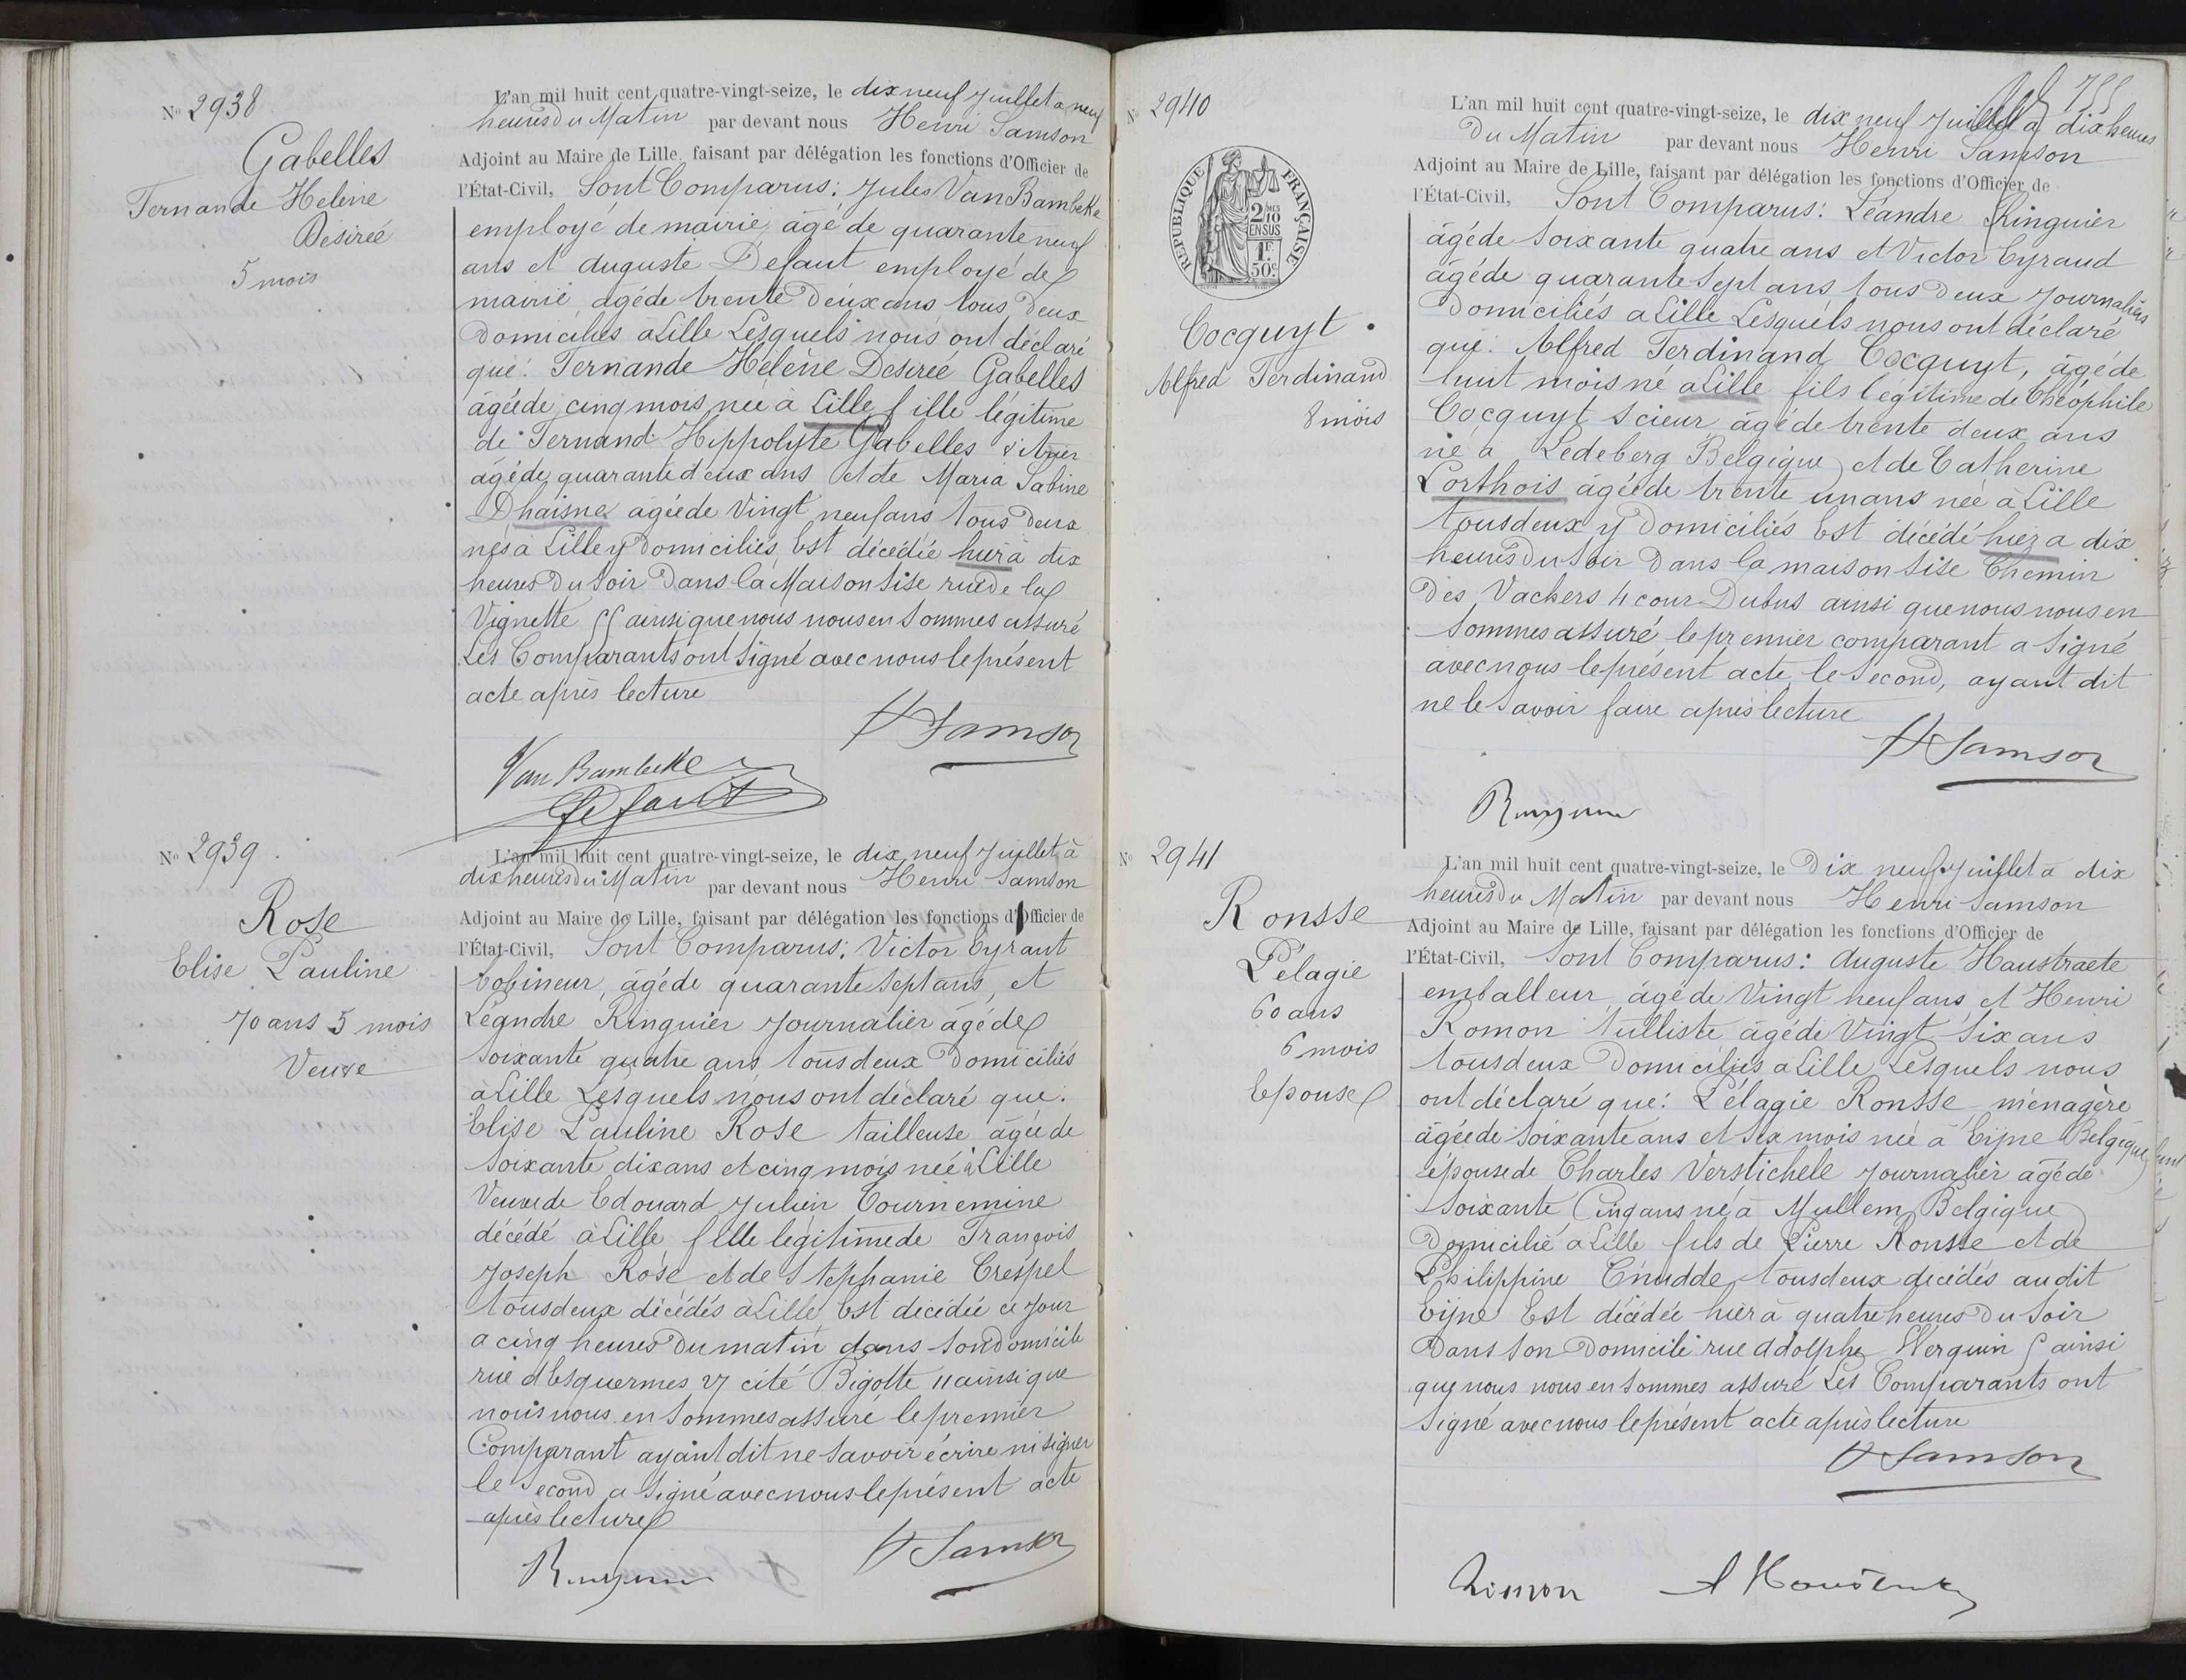 Nº 2938
Gabelles
Fernande Helene
Desireé
5 mois
L'an mil huit cent quatre-vingt-seize, le dix neuf Juillet a neuf
heures du Matin par devant nous Henri Samson
Adjoint au Maire de Lille, faisant par délégation les fonctions d'Officier de
l'État-Civil, Sont Comparus: Jules Van Bambeke
employé de mairie, agé de quarante neuf
ans et Auguste Defaut employé de
mairie, agé de trente deux ans, tous deux
domiciliés à Lille Lesquels nous ont déclaré
que: Fernande Hélène Desireé Gabelles
âgée de cinq mois neé à Lille fille légitime
de Fernand Hippolyte Gabelles vitrier
âgé de quarante deux ans et de Maria Sabine
Dhaisne agée de Vingt neuf ans tous deux
nés à Lille y domiciliés, Est décédée hier à dix
heures du soir dans la Maison sise rue de la
Vignette 55 ainsi que nous nous en sommes assuré
Les Comparants ont signé avec nous le présent
acte après lecture
H Samson
Van Bambeke
Defaut
Nº 2939
Rose
Elise Pauline
70 ans 5 mois
Veuve
L'an mil huit cent quatre-vingt-seize, le dix neuf Juillet à
dix heures du Matin par devant nous Henri Samson
Adjoint au Maire de Lille, faisant par délégation les fonctions d'Officier de
l'État-Civil, Sont Comparus: Victor Cyraut
bobineur, âgé de quarante sept ans, et
Léandre Ringuier Journalier âgé de
soixante quatre ans tous deux domiciliés
à Lille Lesquels nous ont déclaré que:
Elise Pauline Rose tailleuse agée de
soixante dix ans et cinq mois neé à Lille
Veuve de Edouard Julien Tournemine
décédé à Lille fille légitime de François
Joseph Rose et de Stephanie Crespel
tous deux décédés à Lille, Est décédée ce jour
a cinq heures du matin dans son domicile
rue d'Esquermes 27 cité Bigotte 11 ainsi que
nous nous en sommes assuré le premier
Comparant ayant dit ne savoir écrire ni signer
le second a signé avec nous le présent acte
après lecture
H Samson
Ringuier
755
Nº 2940
REPUBLIQUE FRANÇAISE
2/10 MES
EN SUS
1F.
50c.
Cocquyt
Alfred Ferdinand
8 mois
L'an mil huit cent quatre-vingt-seize, le dix neuf Juillet a dix heures
du Matin par devant nous Henri Samson
Adjoint au Maire de Lille, faisant par délégation les fonctions d'Officier de
l'État-Civil, Sont Comparus: Léandre Ringuier
âgé de soixante quatre ans et Victor Cyraud
âgé de quarante sept ans tous deux journaliers
domiciliés a Lille Lesquels nous ont déclaré
que: Alfred Ferdinand Cocquyt, âgé de
huit mois né a Lille fils légitime de Théophile
Cocquyt scieur âgé de trente deux ans
né a Ledeberg Belgique) et de Catherine
Corthois âgée de trente un ans neé a Lille
tous deux y domiciliés Est décédé hier a dix
heures du soir dans la maison sise Chemin
des Vachers 4 cour Dubus ainsi que nous nous en
sommes assuré le premier comparant a signé
avec nous le présent acte le second, ayant dit
ne le savoir faire après lecture
H Samson
Ringuier
Nº 2941
Ronsse
Pélagie
60 ans
6 mois
Epouse
L'an mil huit cent quatre-vingt-seize, le Dix neuf Juillet a dix
heures du Matin par devant nous Henri Samson
Adjoint au Maire de Lille, faisant par délégation les fonctions d'Officier de
l'État-Civil, Sont Comparus: Auguste Haustraete
emballeur âgé de Vingt neuf ans et Henri
Romon tulliste âgé de Vingt six ans
tous deux domiciliés a Lille Lesquels nous
ont déclaré que: Pélagie Ronsse ménagère
âgée de soixante ans et six mois neé à Eijne Belgique)
épouse de Charles Verstichele journalier âgé de
soixante Cinq ans né à Mullem, Belgique)
domicilié a Lille fils de Pierre Ronsse et de
Philippine Cnudde, tous deux décédés audit
Eijne Est décédée hier à quatre heures du soir
dans son domicile rue Adolphe Werquin 5 ainsi
que nous nous en sommes assuré Les Comparants ont
signé avec nous le présent acte après lecture
H Samson